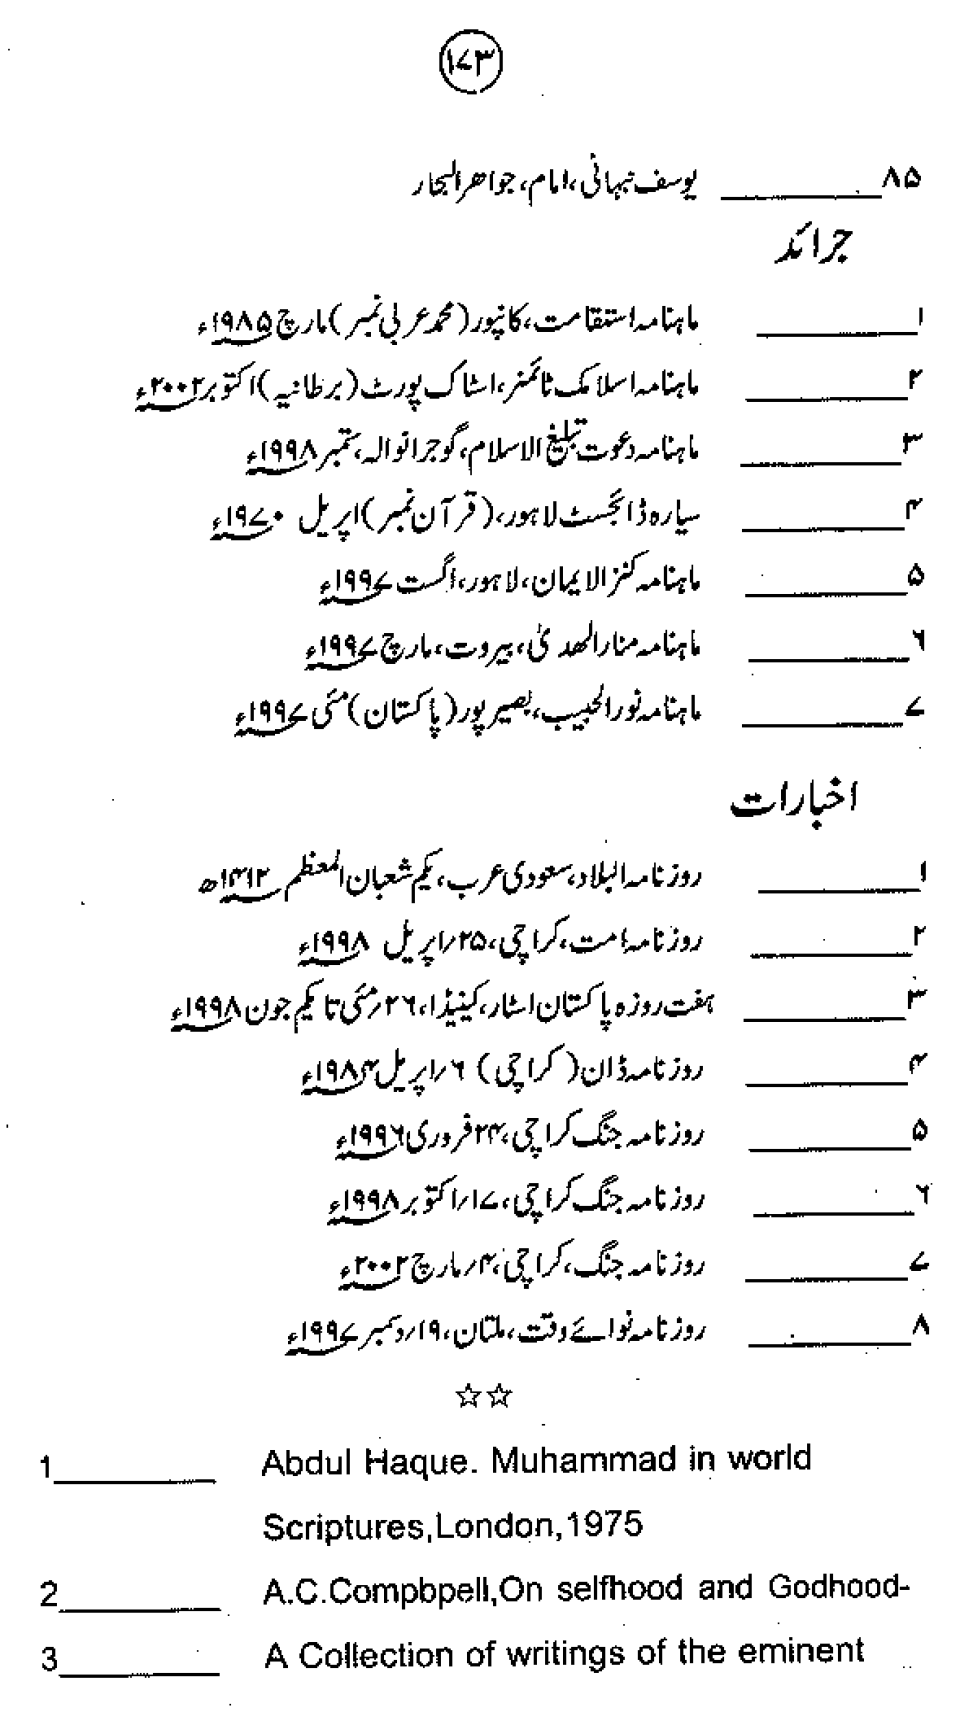 ۱۷۳
۸۵ یوسف نبہانی، امام، جواھر البحار
جرائد
۱ ماہنامہ استقامت، کانپور (محمد عربی نمبر) مارچ ۱۹۸۵ء
۲ ماہنامہ اسلامک ٹائمنر، اسٹاک پورٹ (برطانیہ) اکتوبر ۲۰۰۲ء
۳ ماہنامہ دعوت تبلیغ الاسلام، گوجرانوالہ، ستمبر ۱۹۹۸ء
۴ سیارہ ڈائجسٹ لاہور، (قرآن نمبر) اپریل ۱۹۷۰ء
۵ ماہنامہ کنز الایمان، لاہور، اگست ۱۹۹۷ء
۶ ماہنامہ منار الھدیٰ، بیروت، مارچ ۱۹۹۷ء
۷ ماہنامہ نور الحبیب، بصیر پور (پاکستان) مئی ۱۹۹۷ء
اخبارات
۱ روزنامہ البلاد، سعودی عرب، یکم شعبان المعظم ۱۴۱۲ھ
۲ روزنامہ امت، کراچی، ۲۵/اپریل ۱۹۹۸ء
۳ ہفت روزہ پاکستان اسٹار، کینیڈا، ۲۶/مئی تا یکم جون ۱۹۹۸ء
۴ روزنامہ ڈان (کراچی) ۶/اپریل ۱۹۸۴ء
۵ روزنامہ جنگ کراچی، ۲۴ فروری ۱۹۹۶ء
۶ روزنامہ جنگ کراچی، ۱۷/اکتوبر ۱۹۹۸ء
۷ روزنامہ جنگ، کراچی، ۴/مارچ ۲۰۰۲ء
۸ روزنامہ نوائے وقت، ملتان، ۱۹/دسمبر ۱۹۹۷ء
☆☆
1 Abdul Haque. Muhammad in world
Scriptures,London,1975
2 A.C.Compbpell,On selfhood and Godhood-
3 A Collection of writings of the eminent